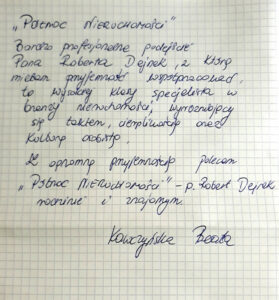 „Północ Nieruchomości"
Bardzo profesjonalne podejście
Pana Roberta Dejnek, z którą
miałam przyjemność współpracować,
to wysokiej klasy specjalista w
branży nieruchomości, wyróżniający
się taktem, cierpliwością oraz
kulturą osobistą.
Z ogromną przyjemnością polecam
„Północ Nieruchomości" – p. Robert Dejnek
rodzinie i znajomym.
Kawczyńska Beata